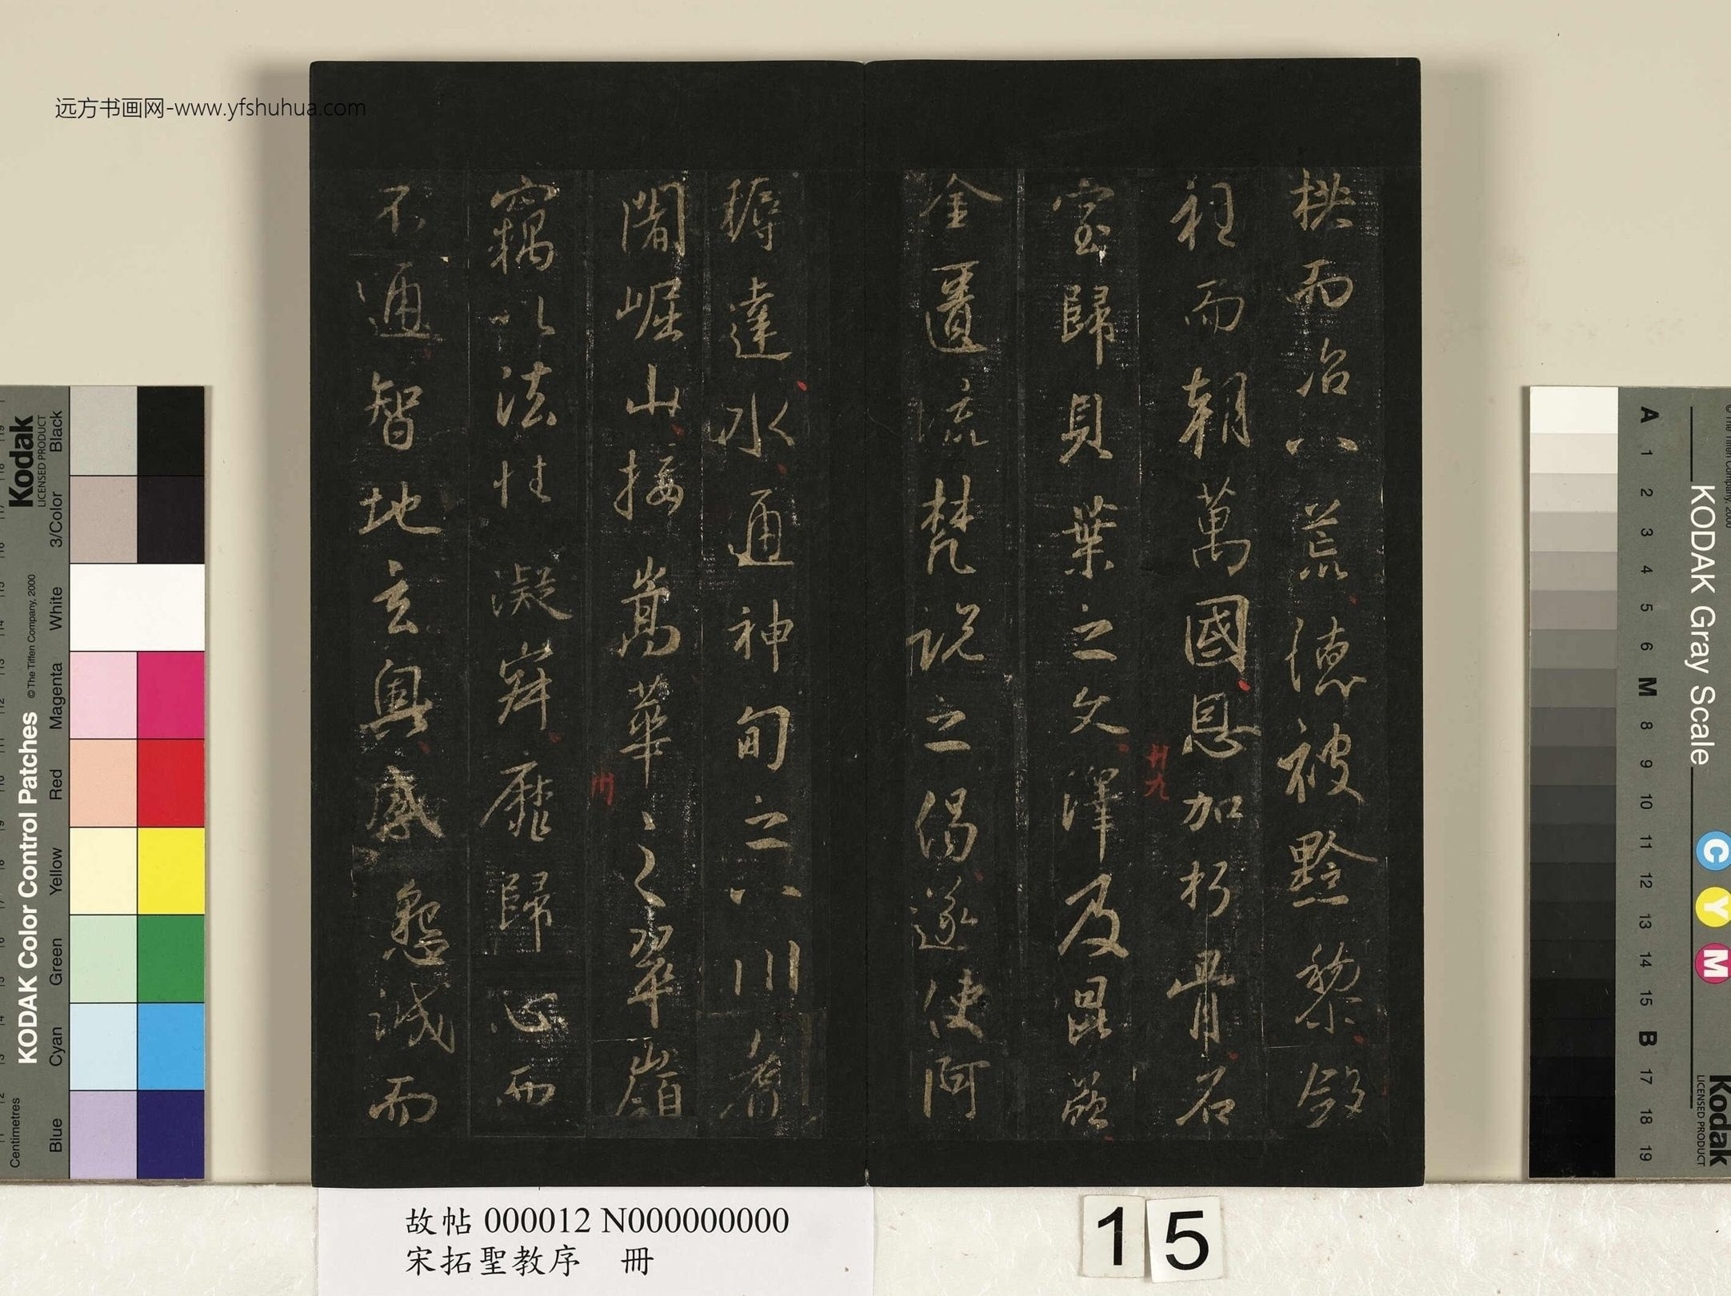 远方书画网-www.yfshuhua.com
栱而治八荒德被黔黎斂
衽而朝萬國恩加朽骨石
廿九
室歸貝葉之文澤及昆蟲
金匱流梵說之偈遂使阿
耨達水通神甸之八川耆
闍崛山接嵩華之翠嶺
卅
竊以法性凝寂靡歸心而
不通智地玄奧感懇誠而
故帖 000012 N000000000
宋拓聖教序 冊
15
Kodak
LICENSED PRODUCT
KODAK Color Control Patches
© The Tiffen Company, 2000
Centimetres
Black
3/Color
White
Magenta
Red
Yellow
Green
Cyan
Blue
KODAK Gray Scale
C Y M
Kodak
LICENSED PRODUCT
A 1 2 3 4 5 6 M 8 9 10 11 12 13 14 15 B 17 18 19